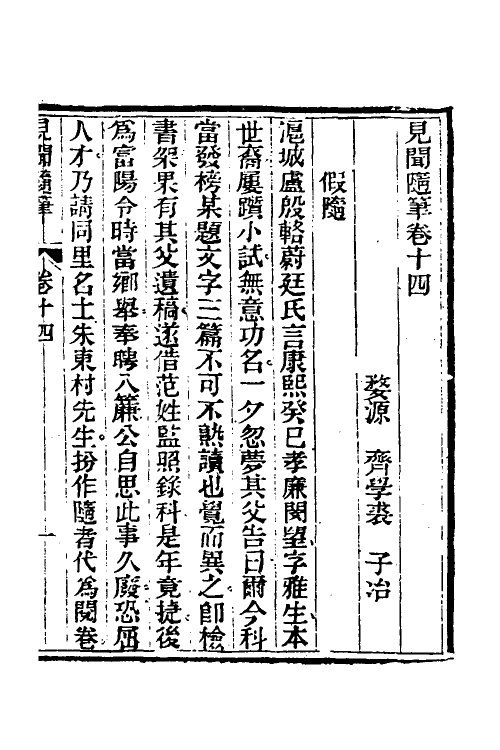 見聞隨筆卷十四
婺源　齊學裘　子冶
假隨
滬城盧殷輅蔚廷氏言康熙癸巳孝廉閔望字雅生本
世裔屢躓小試無意功名一夕忽夢其父告曰爾今科
當發榜某題文字三篇不可不熟讀也覺而異之卽檢
書架果有其父遺稿遂借范姓監照錄科是年竟捷後
爲富陽令時當鄉舉奉聘入簾公自思此事久廢恐屈
人才乃請同里名士朱東村先生扮作隨者代爲閱卷
見聞隨筆　卷十四　一